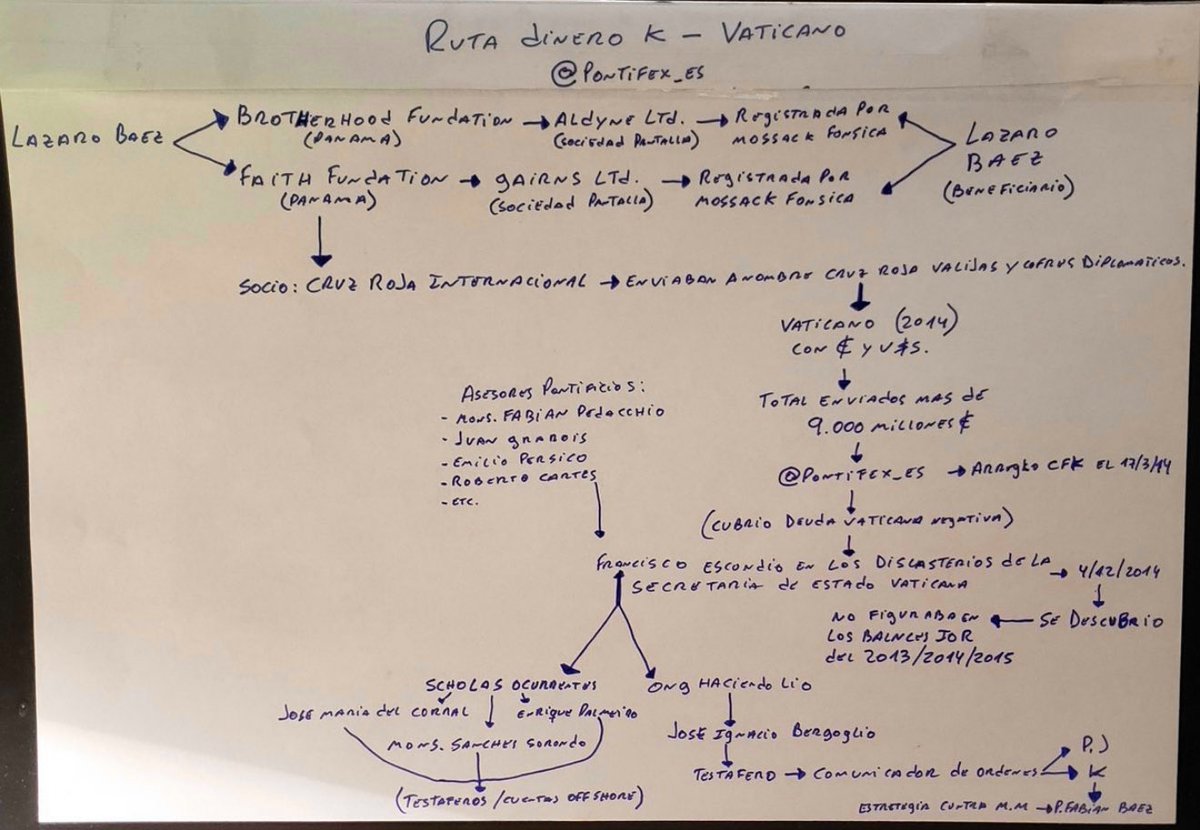 RUTA DINERO K – VATICANO
@PONTIFEX_ES
LAZARO BAEZ
BROTHERHOOD FUNDATION → ALDYNE LTD. → REGISTRADA POR
(PANAMA) (SOCIEDAD PANTALLA) MOSSACK FONSICA
FAITH FUNDATION → GAIRNS LTD. → REGISTRADA POR
(PANAMA) (SOCIEDAD PANTALLA) MOSSACK FONSICA
LAZARO
BAEZ
(BENEFICIARIO)
SOCIO: CRUZ ROJA INTERNACIONAL → ENVIABAN A NOMBRE CRUZ ROJA VALIJAS Y COFRES DIPLOMATICOS.
VATICANO (2014)
CON € Y U$S.
TOTAL ENVIADOS MAS DE
9.000 MILLONES €
@PONTIFEX_ES → ARREGLO CFK EL 17/3/14
(CUBRIO DEUDA VATICANA NEGATIVA)
ASESORES PONTIFICIOS:
- MONS. FABIAN PEDACCHIO
- JUAN GRABOIS
- EMILIO PERSICO
- ROBERTO CARTES
- ETC.
FRANCISCO ESCONDIO EN LOS DISCASTERIOS DE LA
SECRETARIA DE ESTADO VATICANA
→ 4/12/2014
SE DESCUBRIO
NO FIGURABA EN
LOS BALNCES IOR
DEL 2013/2014/2015
SCHOLAS OCURRENTES
JOSE MARIA DEL CORRAL
ENRIQUE PALMEIRO
MONS. SANCHES SORONDO
(TESTAFEROS/CUENTAS OFFSHORE)
ONG HACIENDO LIO
JOSÉ IGNACIO BERGOGLIO
TESTAFERO → COMUNICADOR DE ORDENES
P.J
K
ESTRETEGIA CONTRA M.M → P. FABIAN BAEZ